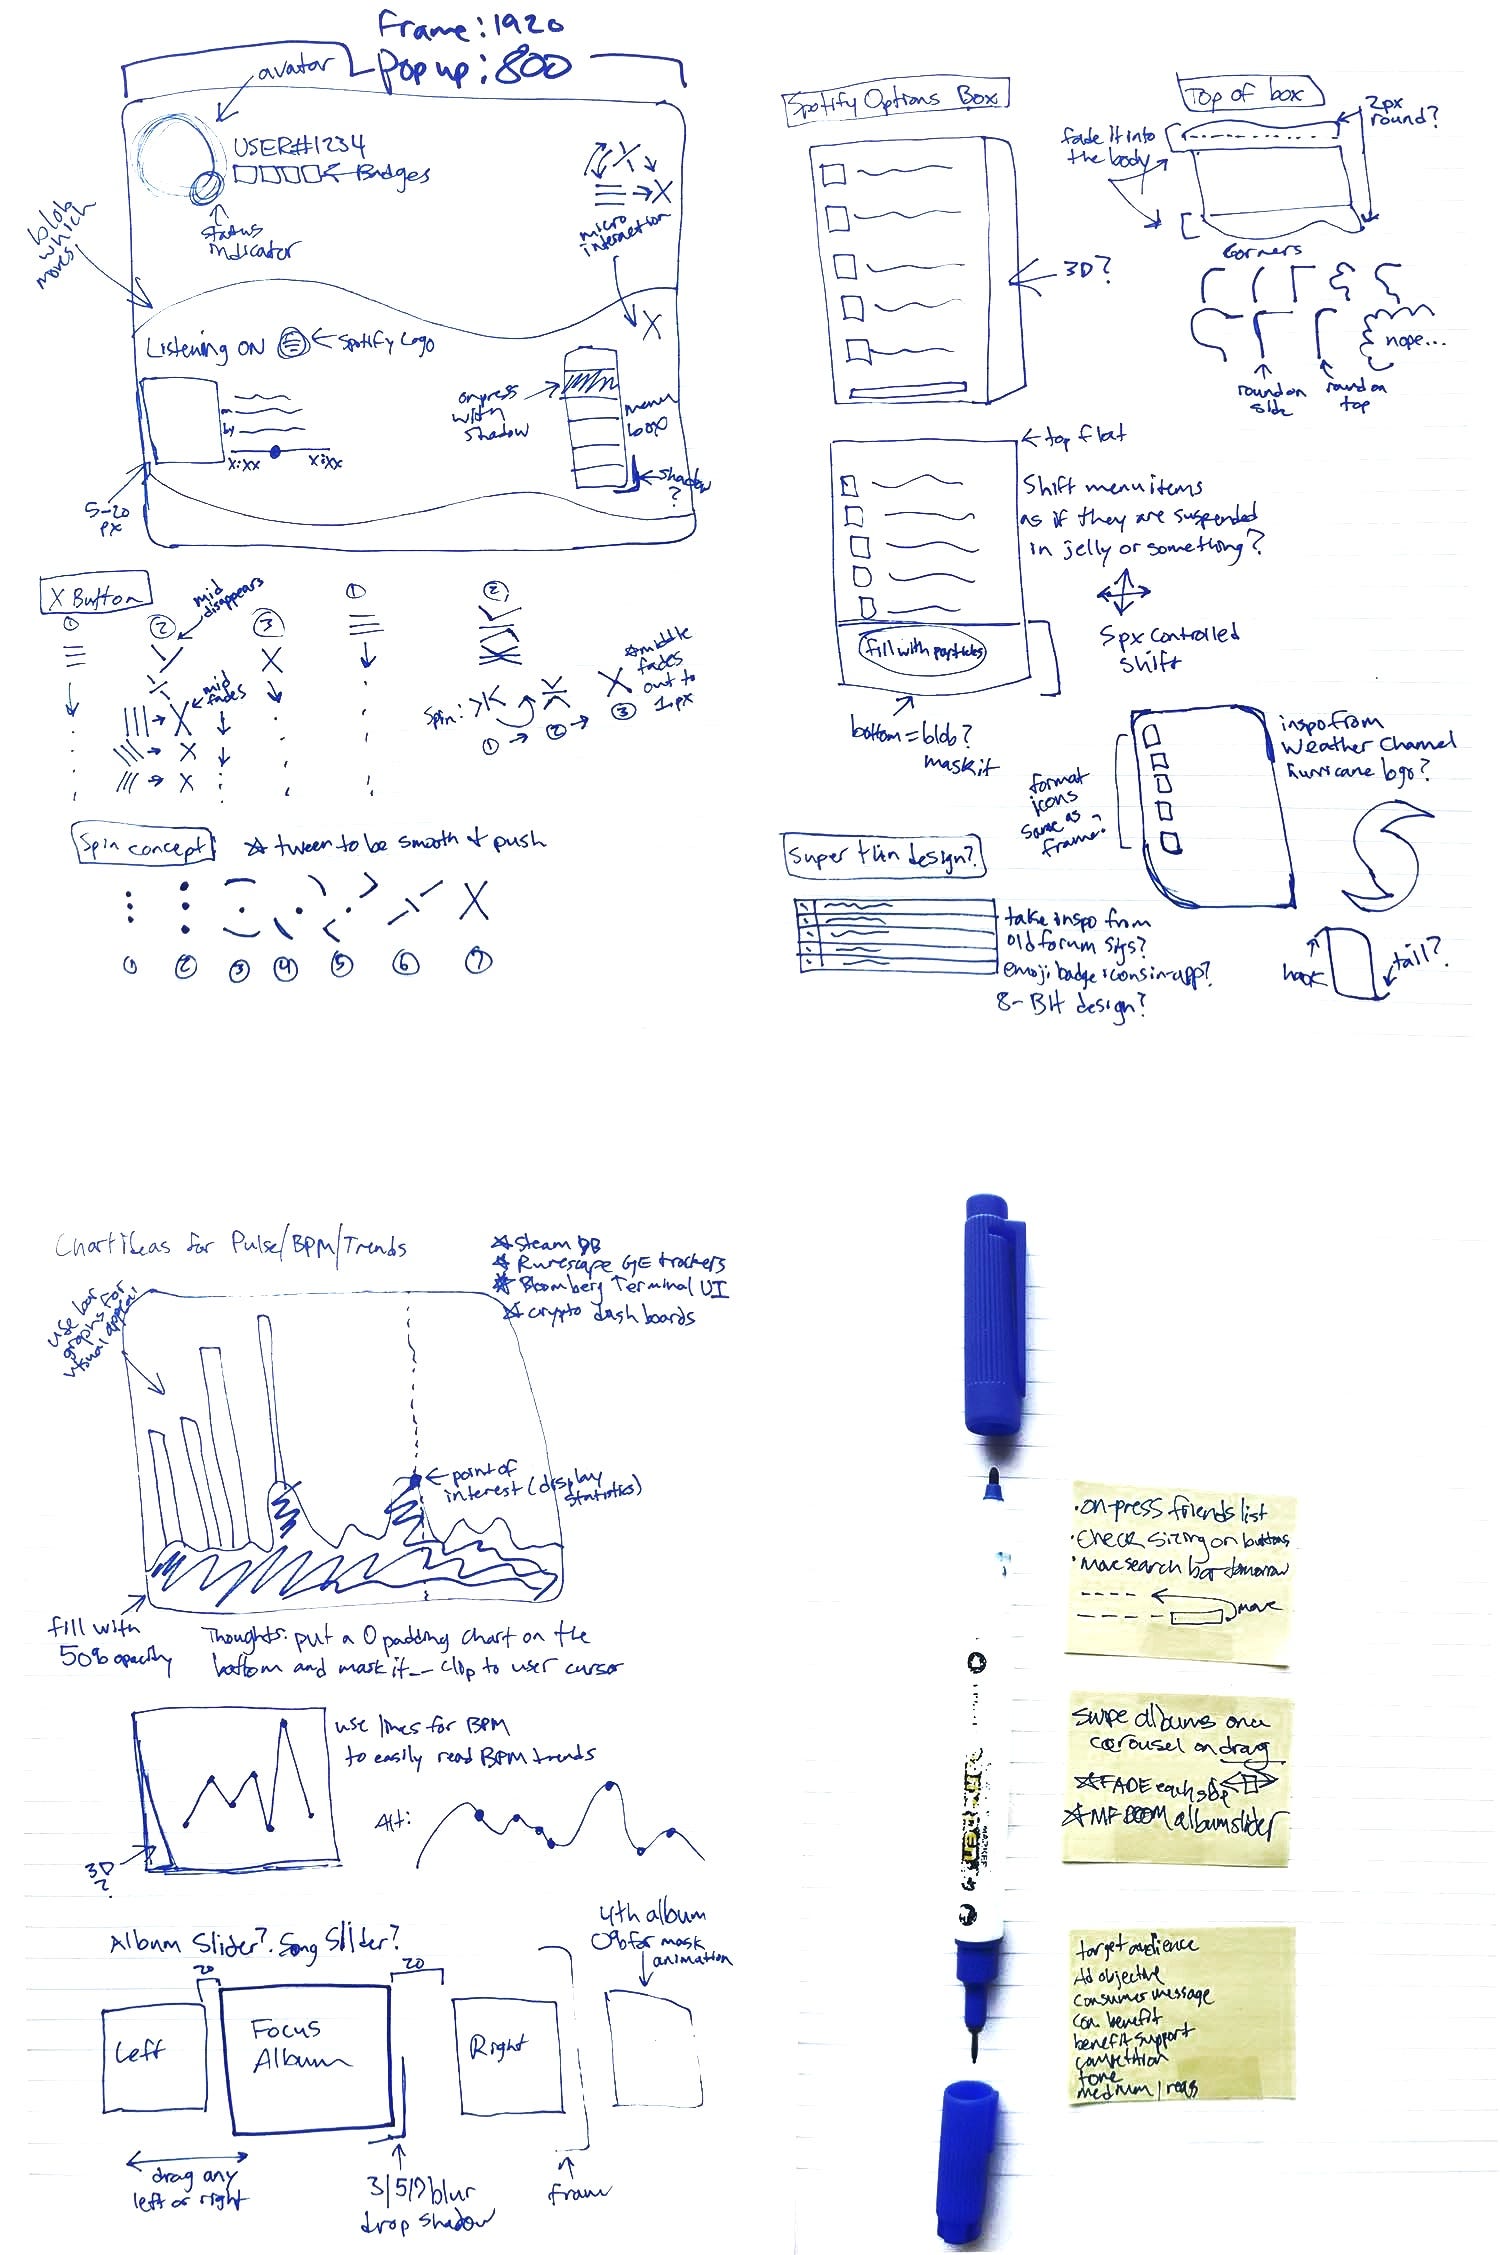 Frame: 1920
Pop up: 800
avatar
USER#1234
Badges
status
indicator
blob
which
moves
micro
interaction
Listening ON
Spotify Logo
on press
with
shadow
menu
box
shadow
?
by
x:xx x:xx
5-20
px
X Button
mid
disappears
① ② ③ ① ②
mid
fades
Spin:
① → ② → ③
☆middle
fades
out to
1px
Spin concept
☆ tween to be smooth & push
① ② ③ ④ ⑤ ⑥ ⑦
Spotify Options Box
3D?
Top of box
2px
round?
fade it into
the body
Corners
nope...
round on
side
round on
top
top flat
Shift menu items
as if they are suspended
in jelly or something?
5px controlled
shift
fill with particles
bottom = blob?
mask it
inspo from
Weather Channel
hurricane logo?
format
icons
same as
frame?
hook
tail?
Super thin design?
take inspo from
old forum sigs?
emoji badge icons in-app?
8-Bit design?
Chart ideas for Pulse/BPM/Trends
☆ Steam DB
☆ Runescape GE trackers
☆ Bloomberg Terminal UI
☆ crypto dashboards
use bar
graphs for
visual appeal
point of
interest (display
statistics)
fill with
50% opacity
Thoughts: put a 0 padding chart on the
bottom and mask it -- clip to user cursor
use lines for BPM
to easily read BPM trends
3D
?
Alt:
Album Slider? Song Slider?
20
20
4th album
0% for mask
animation
Left
Focus
Album
Right
drag any
left or right
3/5/? blur
drop shadow
frame
• on-press friends list
• Check sizing on buttons
• Move search bar tomorrow
move
Swipe albums on a
carousel on drag
☆ FADE each side
☆ MF DOOM album slider
target audience
Ad objective
Consumer message
Con. benefit
benefit support
competition
tone
medium / reqs